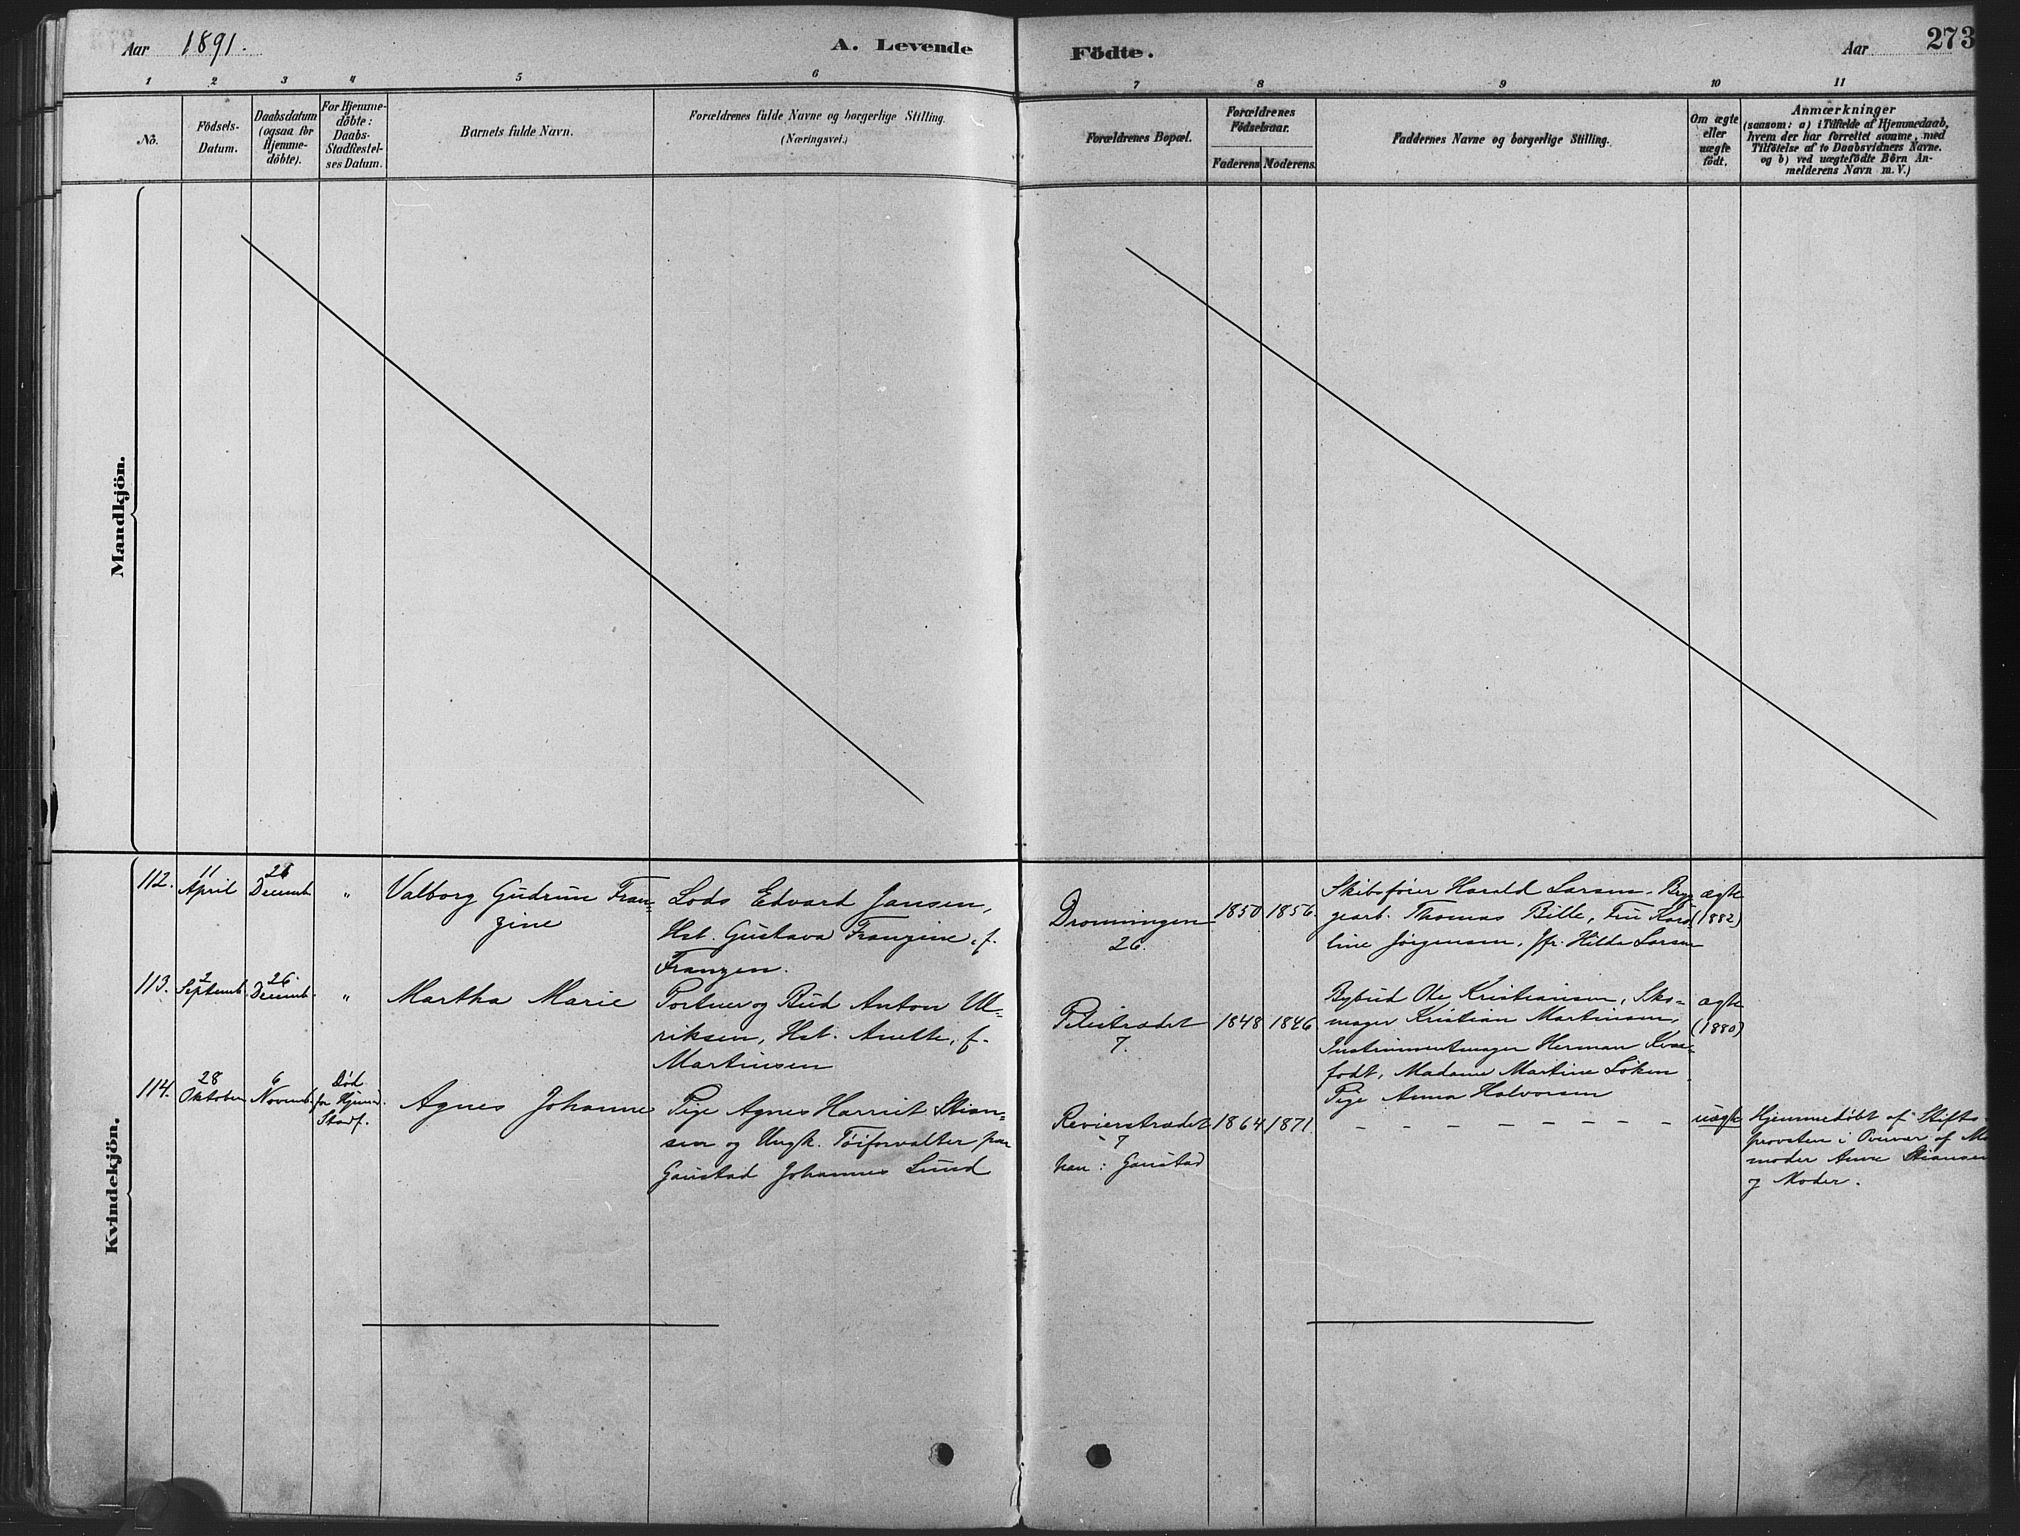 Aar 1891. A. Levende Födte. Aar 273
1 2 3 4 5 6 7 8 9 10 11
No.
Födsels-
Datum.
Daabsdatum
(ogsaa for
Hjemme-
döbte).
For Hjemme-
döbte:
Daabs-
Stadfestel-
ses Datum.
Barnets fulde Navn.
Forældrenes fulde Navne og borgerlige Stilling.
(Næringsvei.)
Forældrenes Bopæl.
Forældrenes
Födselsaar.
Faderens Moderens.
Faddernes Navne og borgerlige Stilling.
Om ægte
eller
uægte
födt.
Anmærkninger
(saasom: a) i Tilfælde af Hjemmedaab,
hvem der har forrettet samme, med
Tilföielse af to Daabsvidners Navne.
og b) ved uægtefödte Börn An-
melderens Navn m. V.)
Mandkjön.
Kvindekjön.
112.
11
April
26
Decemb.
"
Valborg Gudrun Fran-
zine
Lods Edvard Jansen,
Hst. Gustava Franzine, f.
Franzen.
Dronningen
26.
1850 1856.
Skibsfører Harald Larsen, Bryg
gearb. Thomas Bille, Fru Karo
line Jørgensen, Jfr. Hilda Larsen
ægte
(1882)
113.
2
Septemb.
26
Decemb.
"
Martha Marie
Portner og Bud Anton Ul-
riksen, Hst. Anette, f.
Martinsen
Pilestrædet
7.
1848 1846
Bybud Ole Kristiansen, Sko-
mager Kristian Martinsen,
Instrumentmager Herman
fodt, Madame Martine Løken
Pige Anna Halvorsen
ægte
(1880)
114.
28
Oktober
6
Novemb.
Død
før Hjemmed.
Stadf.
Agnes Johanne
Pige Agnes Harriet Stian-
sen og Ungk. Tøiforvalter paa
Gaustad Johannes Lund
Revierstrædet
7
han: Gaustad
1864 1871
– – – – – – – – –
uægte
Hjemmedøbt af Stifts
provsten i Overvær af
moder Anne Stiansen
og Moder.